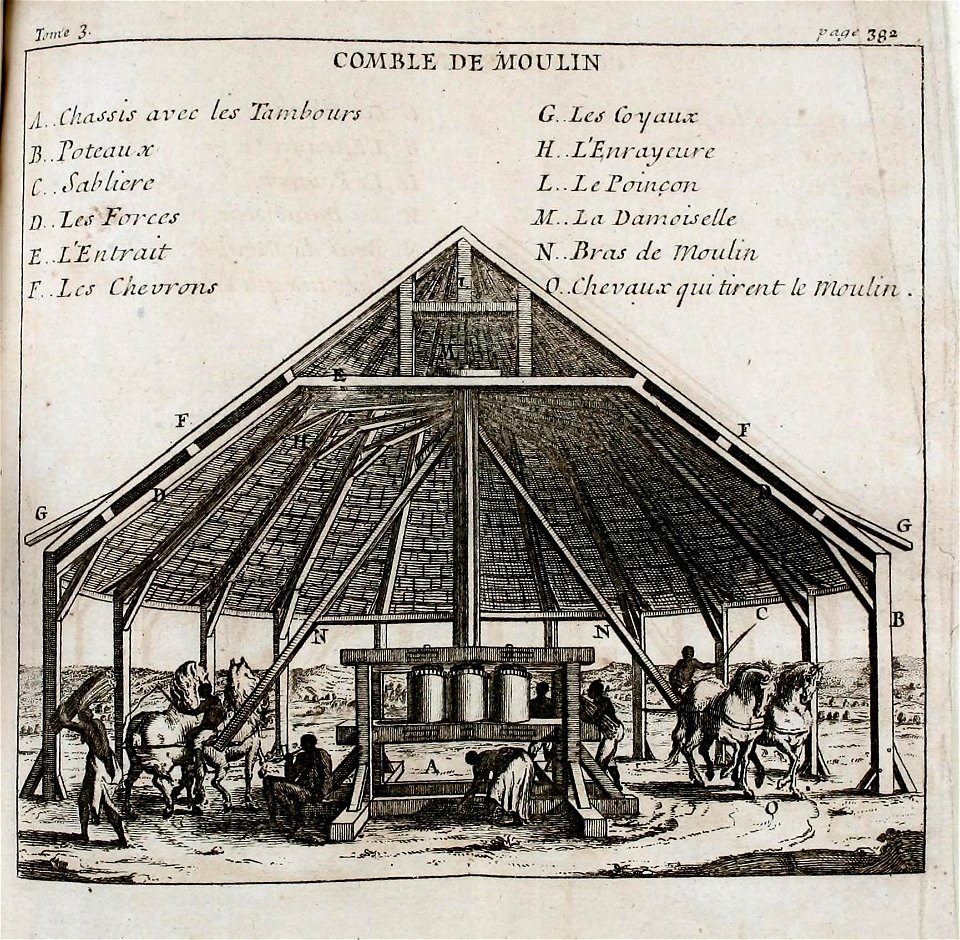 Tome 3.
page 382
COMBLE DE MOULIN
A..Chassis avec les Tambours
B..Poteaux
C..Sabliere
D..Les Forces
E..L'Entrait
F..Les Chevrons
G..Les Coyaux
H..L'Enrayeure
L..Le Poinçon
M..La Damoiselle
N..Bras de Moulin
O..Chevaux qui tirent le Moulin.
L
M
E
F
F
H
D
D
G
G
C
B
N
N
A
O